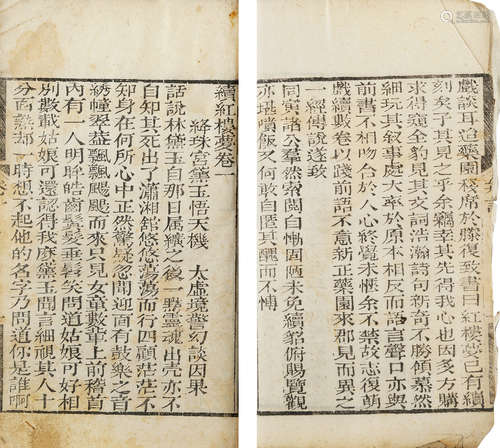 戲談耳迨藥園移席於滕復致書曰紅樓夢已有續
刻矣子其見之乎余竊幸其先得我心也因多方購
求得窺全豹見其文詞浩瀚詩句新奇不勝傾慕然
細玩其叙事處大率於原本相反而語言聲口亦與
前書不相吻合於人心終覺未愜余不禁故志復萌
戲續數卷以踐前語不意新正藥園來郡見而異之
一經傳說遂致
同寅諸公羣然索閱自慚固陋未免續貂俯賜覽觀
亦堪噴飯又何敢自匿其醜而不博
續紅樓夢卷一
絳珠宮黛玉悟天機 太虛境警幻談因果
話說林黛玉自那日屬纊之後一點靈魂出壳亦不
自知其死出了瀟湘舘悠悠蕩蕩而行四顧茫茫不
知身在何所心中正然驚疑忽聞迎面有鼓樂之音
綉幢翠蓋飄飄颺颺而來只見女童數輩上前稽首
内有一人明眸皓齒鬢髮垂髫笑問道姑娘可好相
別數載姑娘可還認得我麼黛玉聞言細視其人十
分面熟却一時想不起他的名字乃問道你是誰啊